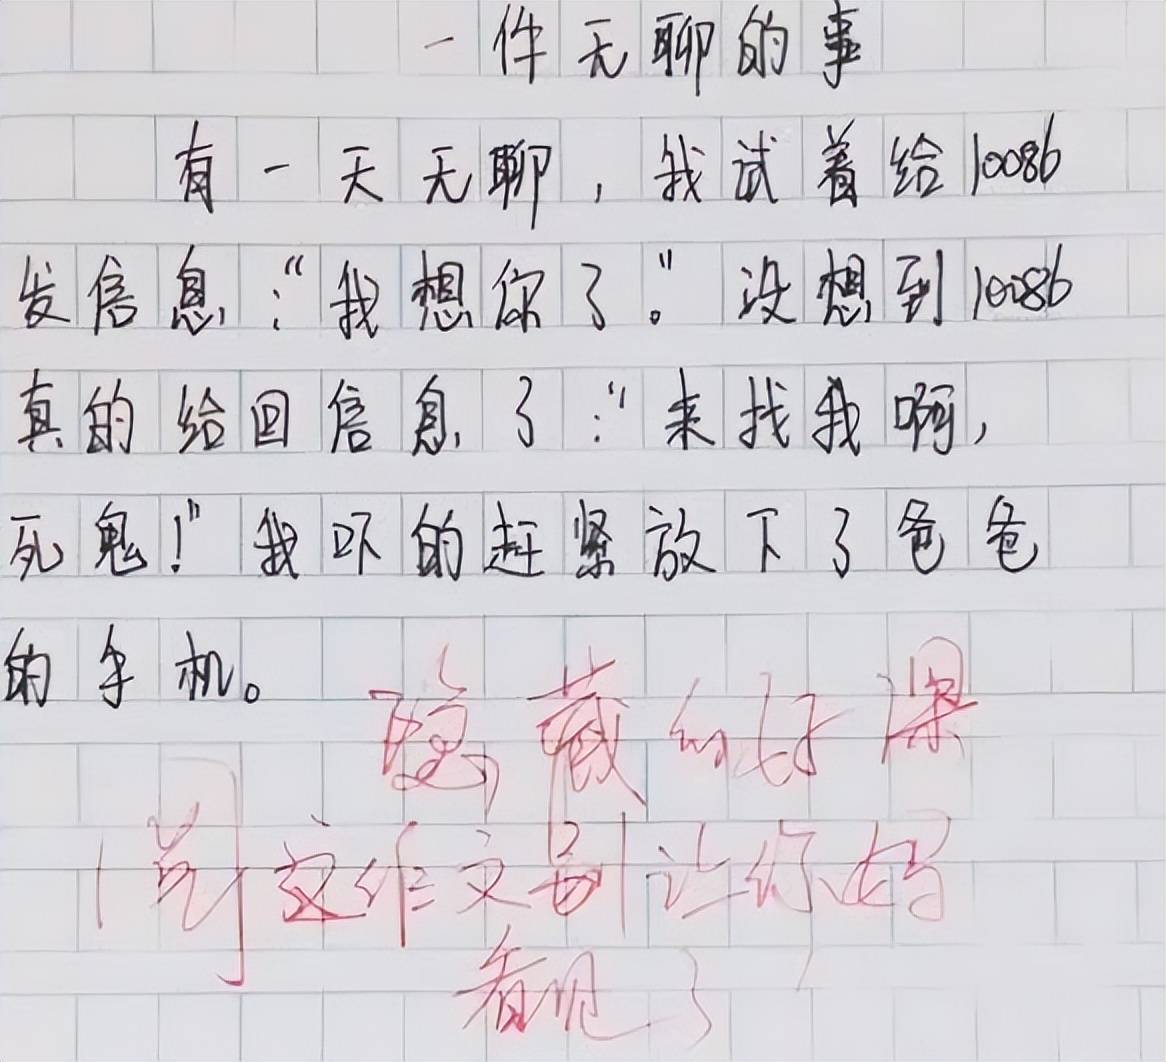 一件无聊的事
有一天无聊，我试着给10086
发信息：“我想你了。”没想到10086
真的给回信息了：“来找我啊，
死鬼！”我吓的赶紧放下了爸爸
的手机。
隐藏的好深
这作文别让你妈
看见了